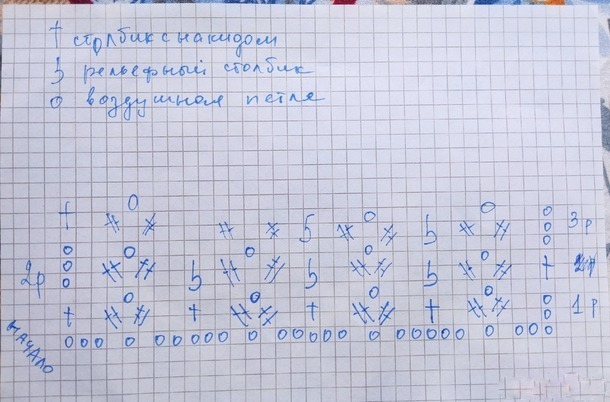 † столбик с накидом
5 рельефный столбик
0 воздушная петля
3р
2р
2р
1р
НАЧАЛО